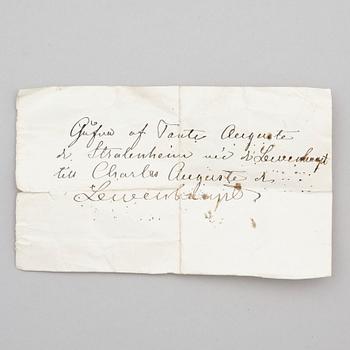 Gåfva af Tante Auguste
d. Stralenheim née d Lewenhaupt
till Charles Auguste d.
Lewenhaupt